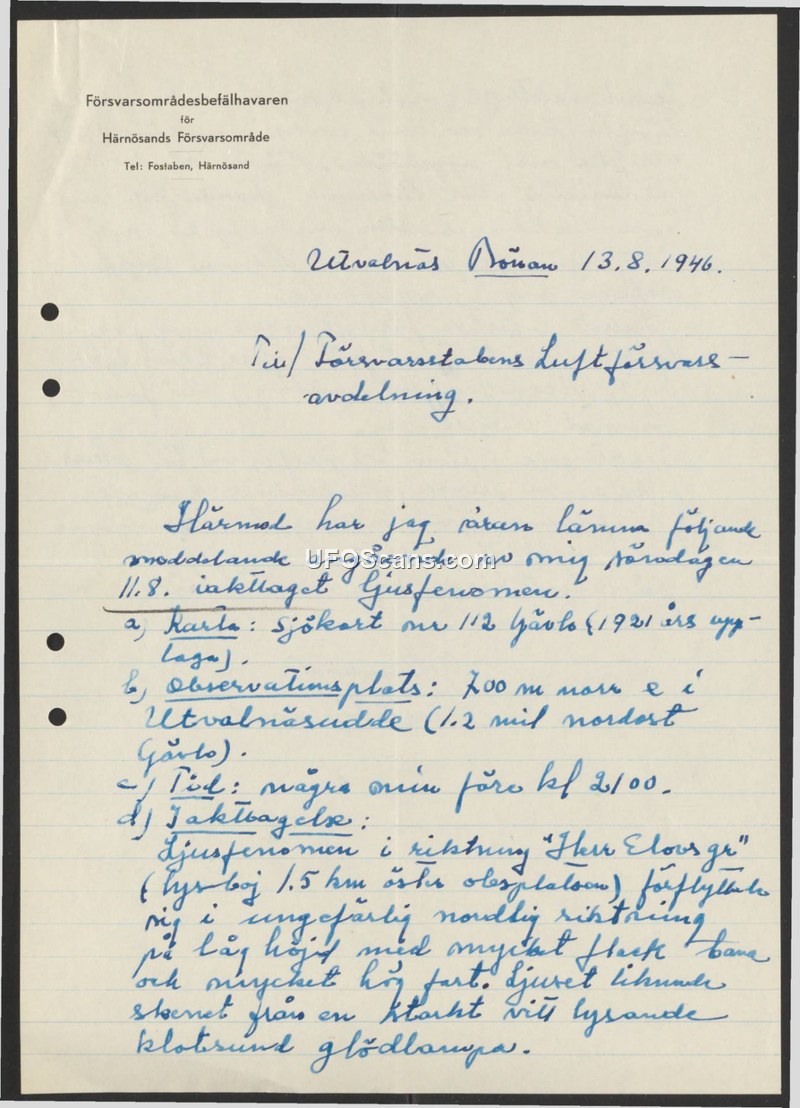 Försvarsområdesbefälhavaren
för
Härnösands Försvarsområde
Tel: Fostaben, Härnösand
Utvalnäs Bönan 13.8.1946.
Till/ Försvarsstabens Luftförsvars-
avdelning.
Härmed har jag äran lämna följande
meddelande angående av mig söndagen
UFOScans.com
11.8. iakttaget ljusfenomen.
a) Karta: Sjökort nr 112 Gävle (1921 års upp-
laga).
b) Observationsplats: 700 m norr e i
Utvalnäsudde (1.2 mil nordost
Gävle).
c) Tid: några min före kl 2100.
d) Iakttagelse:
Ljusfenomen i riktning "Herr Elovs gr"
(lysboj 1.5 km öster obsplatsen) förflyttade
sig i ungefärlig nordlig riktning
på låg höjd med mycket flack bana
och mycket hög fart. Ljuset liknade
skenet från en starkt vitt lysande
klotrund glödlampa.